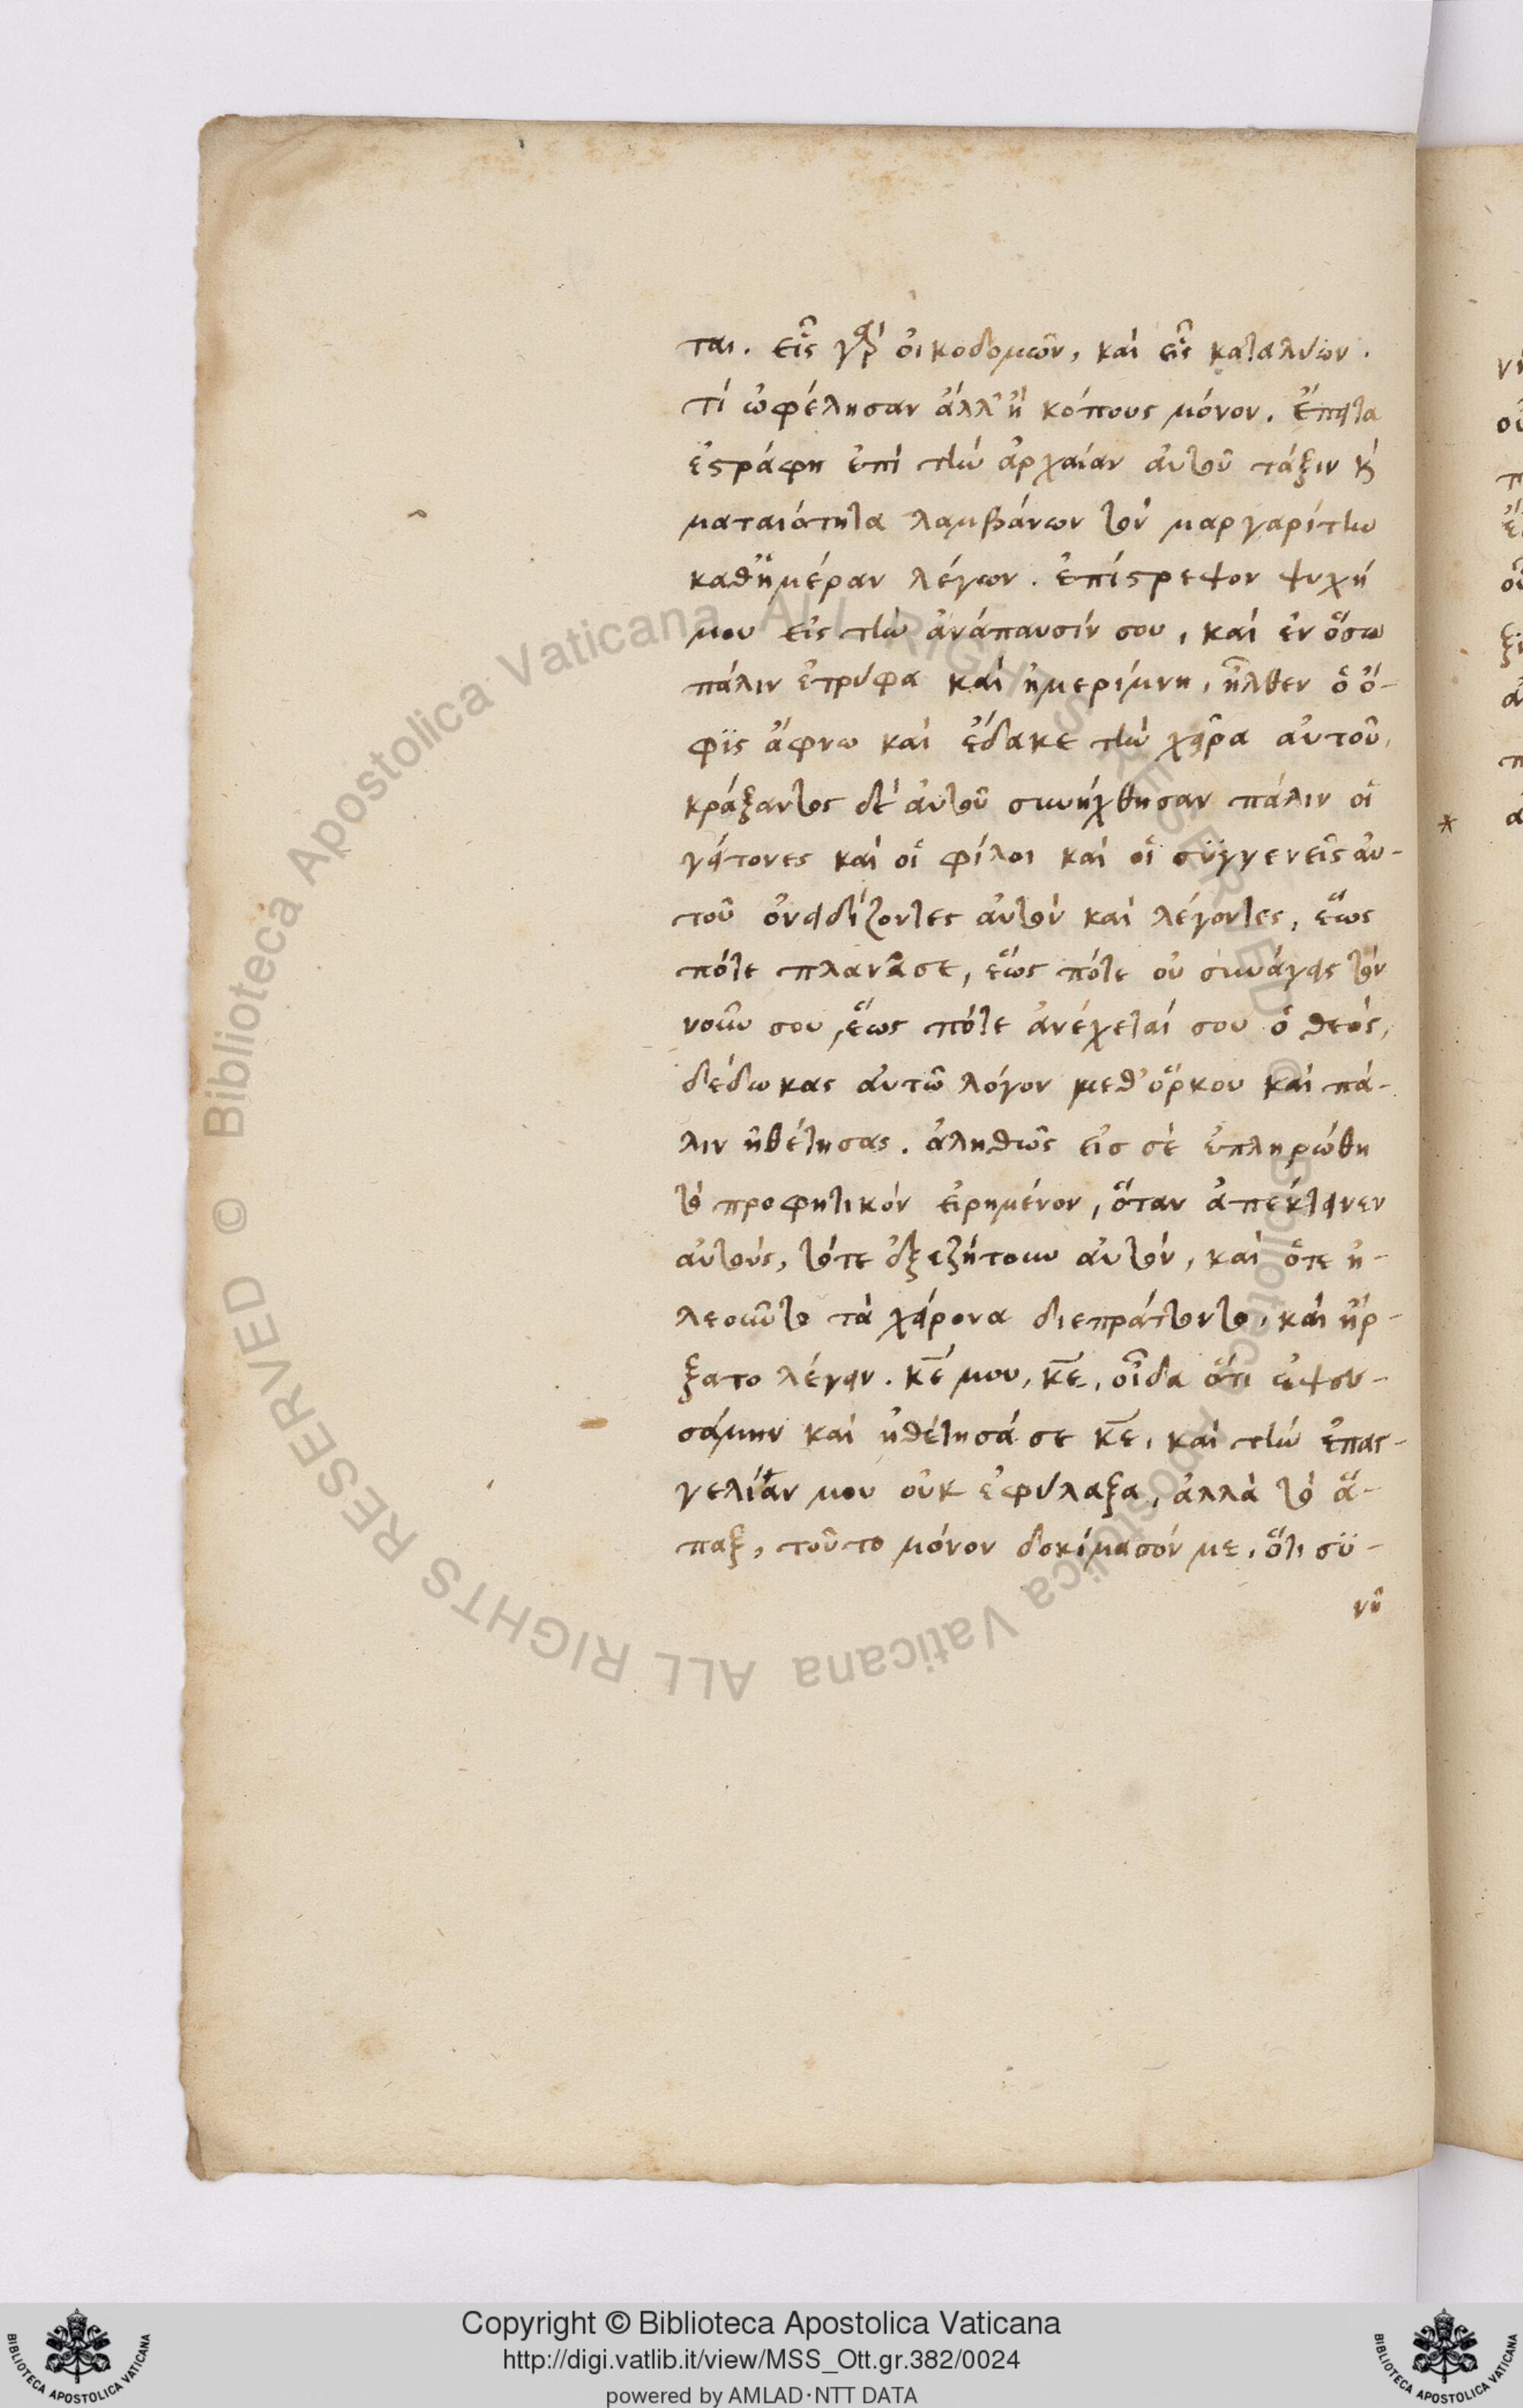 ται. εἷς γὰρ οἰκοδομῶν, καὶ εἷς καταλύων.
τί ὠφέλησαν ἀλλ' ἢ κόπους μόνον. ἔπειτα
ἐστράφη ἐπὶ τὴν ἀρχαίαν αὐτοῦ τάξιν κ̀
ματαιότητα λαμβάνων τὸν μαργαρίτην
καθ' ἡμέραν λέγων. ἐπίστρεψον ψυχή
μου εἰς τὴν ἀνάπαυσίν σου, καὶ ἐν ὅσω
πάλιν ἐτρύφα καὶ ἠμερίμνη, ἦλθεν ὁ ὄ-
φϊς ἄφνω καὶ ἔδακε τὴν χεῖρα αὐτοῦ,
κράξαντος δὲ αὐτοῦ συνήχθησαν πάλιν οἱ
γείτονες καὶ οἱ φίλοι καὶ οἱ σϋγγενεῖς αὐ-
τοῦ ὀνειδίζοντες αὐτὸν καὶ λέγοντες, ἕως
πότε πλανᾶσε, ἕως πότε οὐ συνάγεις τὸν
νοῦν σου, ἕως πότε ἀνέχεταί σου ὁ θεός,
δέδωκας αὐτῶ λόγον μεθ' ὅρκου καὶ πά-
λιν ἠθέτησας. ἀληθῶς εἰσ σὲ ἐπληρώθη
τὸ προφητικὸν εἰρημένον, ὅταν ἀπέκτεινεν
αὐτοὺς, τότε ἐξεζήτουν αὐτὸν, καὶ ὅτε ἠ-
λεοῦντο τὰ χείρονα διεπράττοντο, καὶ ἤρ-
ξατο λέγειν. κ̅ε̅ μου, κ̅ε̅, οἶδα ὅτι ἐψευ-
σάμην καὶ ἠθέτησά σε κ̅ε̅, καὶ τὴν ἐπαγ-
γελίαν μου οὐκ ἐφύλαξα, ἀλλὰ τὸ ἅ-
παξ, τοῦτο μόνον δοκίμασόν με, ὅτι σϋ-
νῆ
Biblioteca Apostolica Vaticana ALL RIGHTS RESERVED © Biblioteca Apostolica Vaticana ALL RIGHTS RESERVED ©
Copyright © Biblioteca Apostolica Vaticana
http://digi.vatlib.it/view/MSS_Ott.gr.382/0024
powered by AMLAD·NTT DATA
BIBLIOTECA APOSTOLICA VATICANA
BIBLIOTECA APOSTOLICA VATICANA